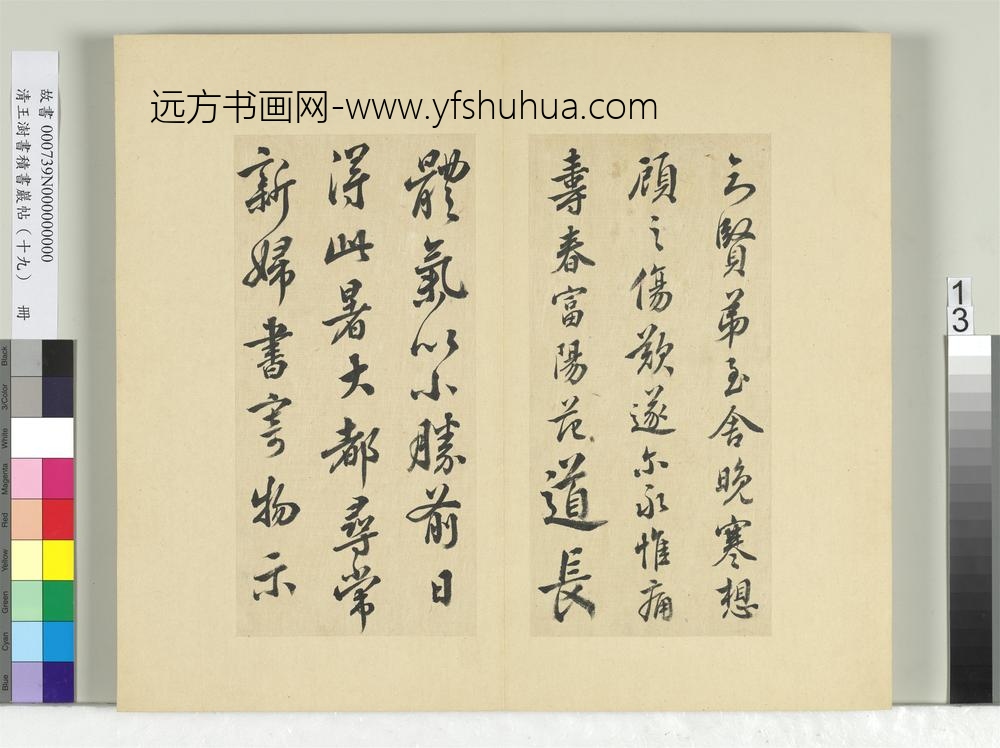 远方书画网-www.yfshuhua.com
故書 000739N000000000
清王澍書積書巖帖（十九） 冊
賢弟至舍晚寒想
顧之傷歎遂尔永惟痛
壽春富陽范道長
體氣以小勝前日
得此暑大都尋常
新婦書寄物示
1
3
Black
3/Color
White
Magenta
Red
Yellow
Green
Cyan
Blue